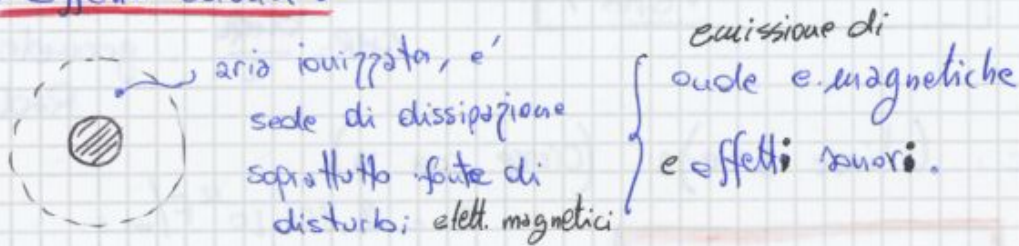 aria ionizzata, e'
sede di dissipazione
soprattutto fonte di
disturbi elett. magnetici
emissione di
onde e.magnetiche
e effetti sonori.